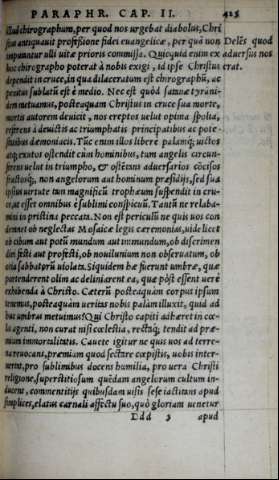 PARAPHR. CAP. II. 425
illud chirographum, per quod nos urgebat diabolus, Chri
stus antiquauit professióne fidei euangelicæ, per quã non Delẽs quod
imputantur ulli uitæ prioris commissa. Quicquid enim ex aduersus nos
hoc chirographo poterat à nobis exigi, id ipse Christus erat.
dependit in cruce, in qua dilaceratum est chirographũ, ac
penitus sublatũ est è medio. Nec est quòd satanæ tyrãni-
dem metuamus, posteaquam Christus in cruce sua morte,
mortis autorem deuicit, nos ereptos uelut opima spolia,
à deuictis ac triumphatis principatibus ac pote-
statibus dæmoniacis. Tũc enim illos libere palamq́; uictos
exutos ostendit cùm hominibus, tum angelis circun-
ferens uelut in triumpho, & ostẽtans aduersarios
fractosq́;, non angelorum aut hominum præsidijs, sed sua
ipsius uirtute tam magnificũ trophæum suspendit in cru-
ce, ut esset omnibus è sublimi conspicuũ. Tantũ ne relaba-
mini in pristina peccata. Non est periculũ ne quis uos con
demnet ob neglectas Mosaicæ legis ceremonias, uidelicet
ob cibum aut potũ mundum aut immundum, ob discrimen
diei festi aut profesti, ob nouilunium non obseruatum, ob
ocia sabbatorũ uiolata. Siquidem hæ fuerunt umbræ, quæ
portenderent olim ac deliniarent ea, quæ pòst essent uerè
exhibenda à Christo. Cæterũ posteaquàm corpus ipsum
tenemus, posteaquàm ueritas nobis palàm illuxit, quid ad
huc umbras metuimus? Qui Christo capiti adhæret in cœ-
lo agenti, non curat nisi cœlestia, rectáq; tendit ad præ-
mium immortalitatis. Cauete igitur ne quis uos ad terre-
na reuocans, præmium quod sectare cœpistis, uobis inter-
uertat, pro sublimibus docens humilia, pro uera Christi
religione, superstitiosum quẽdam angelorum cultum in-
ducens, commentitijs quibusdam uisis sese iactitans apud
simplices, elatus carnali affectu suo, quò gloriam uenetur
Ddd 3 apud